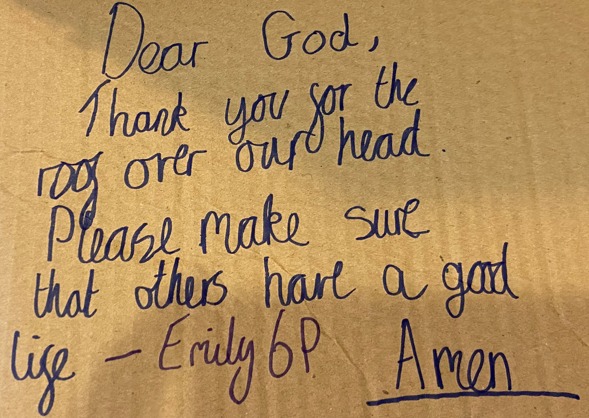 Dear God,
Thank you for the
roof over our head.
Please make sure
that others have a good
life - Emily 6P Amen